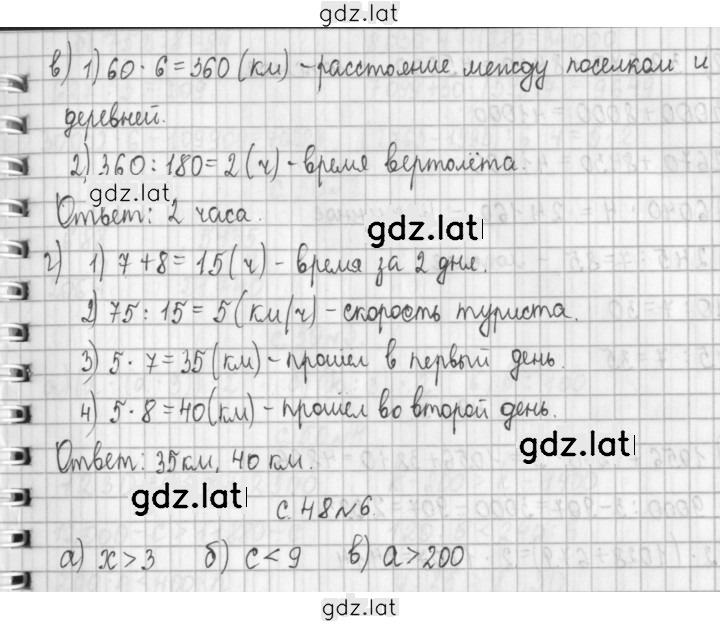 gdz.lat
в) 1) 60 · 6 = 360 (км) - расстояние между поселком и
деревней.
2) 360 : 180 = 2 (ч) - время вертолёта.
gdz.lat
Ответ: 2 часа.
gdz.lat
г) 1) 7 + 8 = 15 (ч) - время за 2 дня.
2) 75 : 15 = 5 (км/ч) - скорость туриста.
3) 5 · 7 = 35 (км) - прошёл в первый день.
4) 5 · 8 = 40 (км) - прошёл во второй день.
gdz.lat
Ответ: 35 км, 40 км.
gdz.lat
с. 48 № 6.
а) x > 3 б) c < 9 в) a > 200
gdz.lat